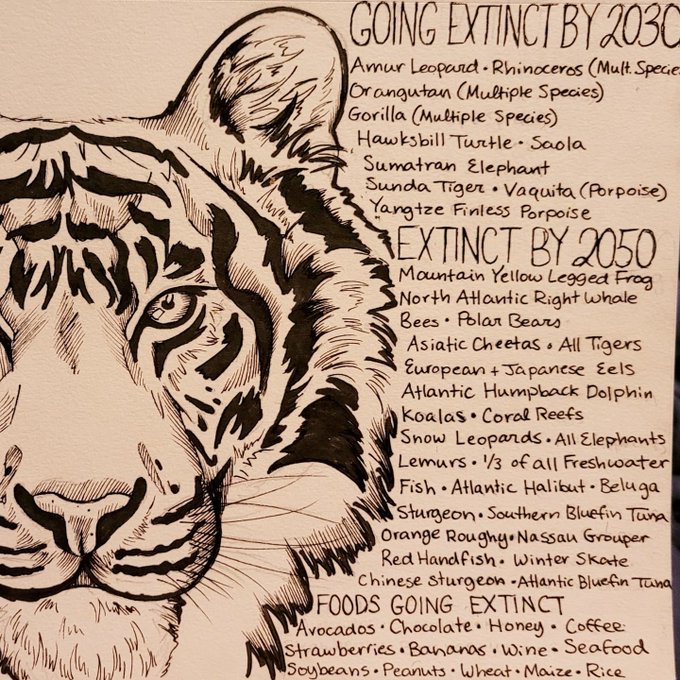 GOING EXTINCT BY 2030
Amur Leopard • Rhinoceros (Mult. Specie
Orangutan (Multiple Species)
Gorilla (Multiple Species)
Hawksbill Turtle • Saola
Sumatran Elephant
Sunda Tiger • Vaquita (Porpoise)
Yangtze Finless Porpoise
EXTINCT BY 2050
Mountain Yellow Legged Frog
North Atlantic Right Whale
Bees • Polar Bears
Asiatic Cheetas • All Tigers
European + Japanese Eels
Atlantic Humpback Dolphin
Koalas • Coral Reefs
Snow Leopards • All Elephants
Lemurs • 1/3 of all Freshwater
Fish • Atlantic Halibut • Beluga
Sturgeon • Southern Bluefin Tuna
Orange Roughy • Nassau Grouper
Red Handfish • Winter Skate
Chinese Sturgeon • Atlantic Bluefin Tuna
FOODS GOING EXTINCT
Avocados • Chocolate • Honey • Coffee
Strawberries • Bananas • Wine • Seafood
Soybeans • Peanuts • Wheat • Maize • Rice